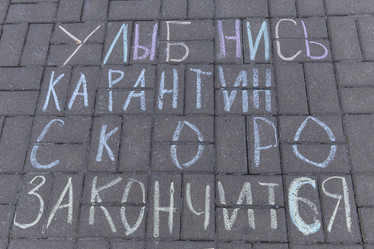 УЛЫБНИСЬ
КАРАНТИН
СКОРО
ЗАКОНЧИТСЯ